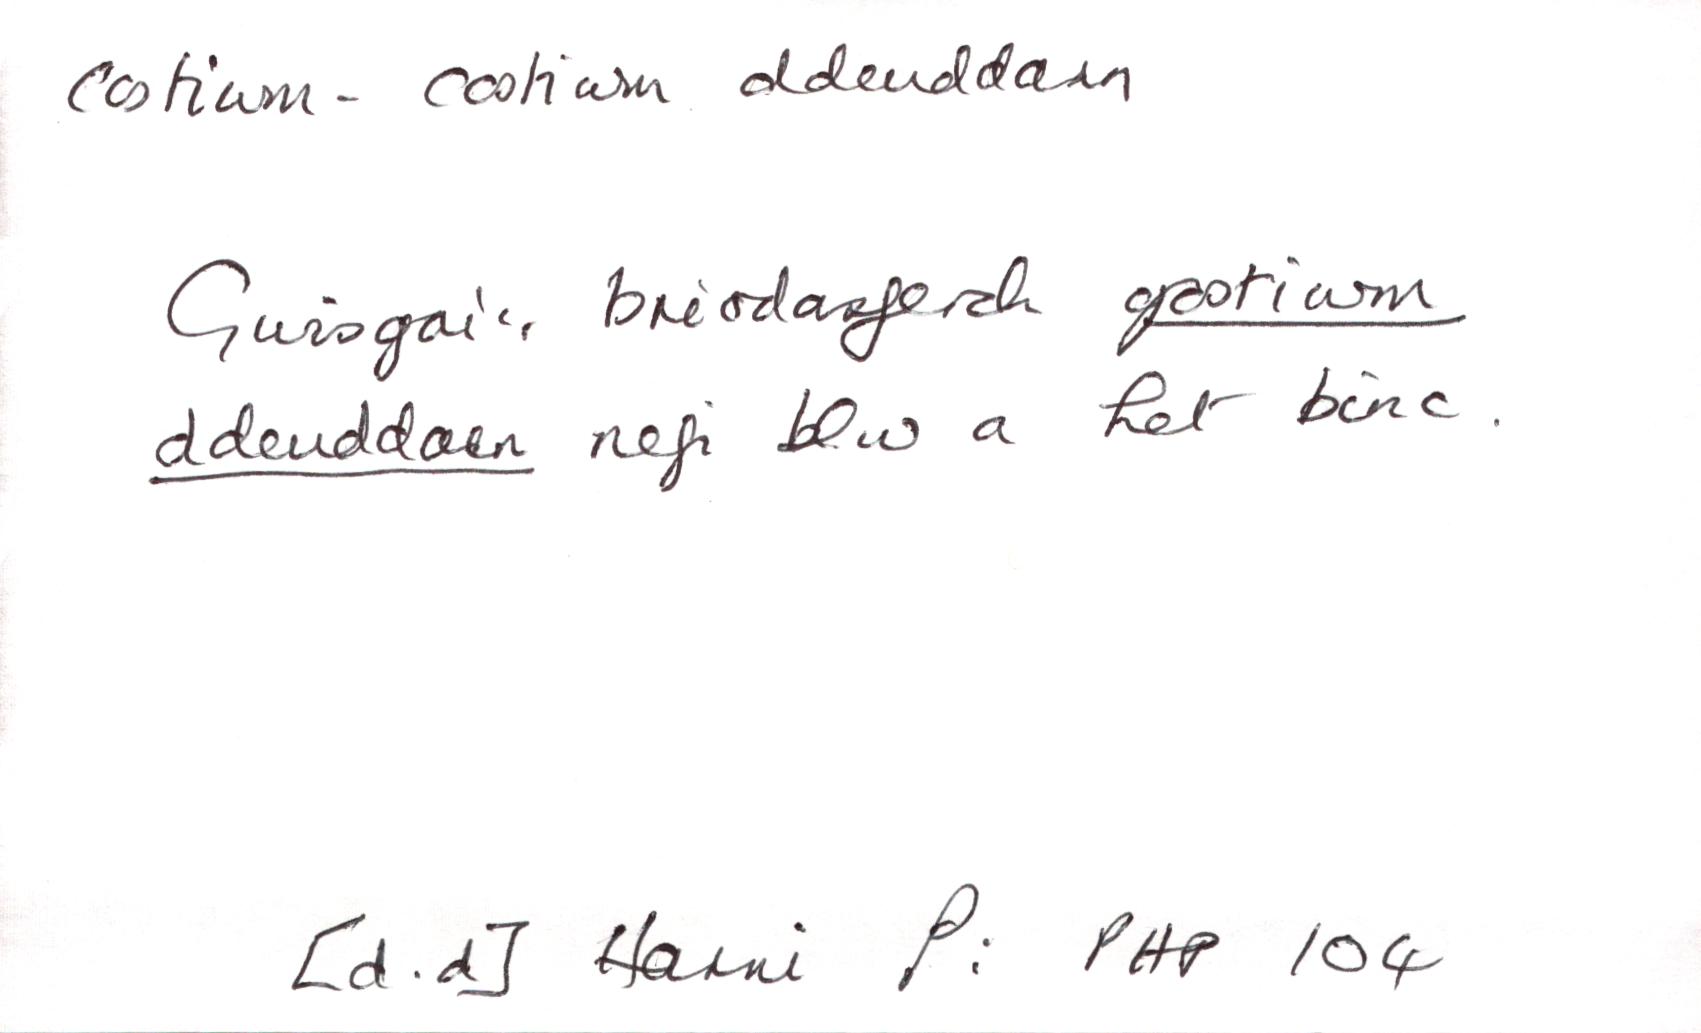 Costiwm - costiwm ddeuddarn
Gwisgai'r briodasferch gostiwm
ddeuddarn nefi blw a het binc.
[d.d] Harri P: PHP 104